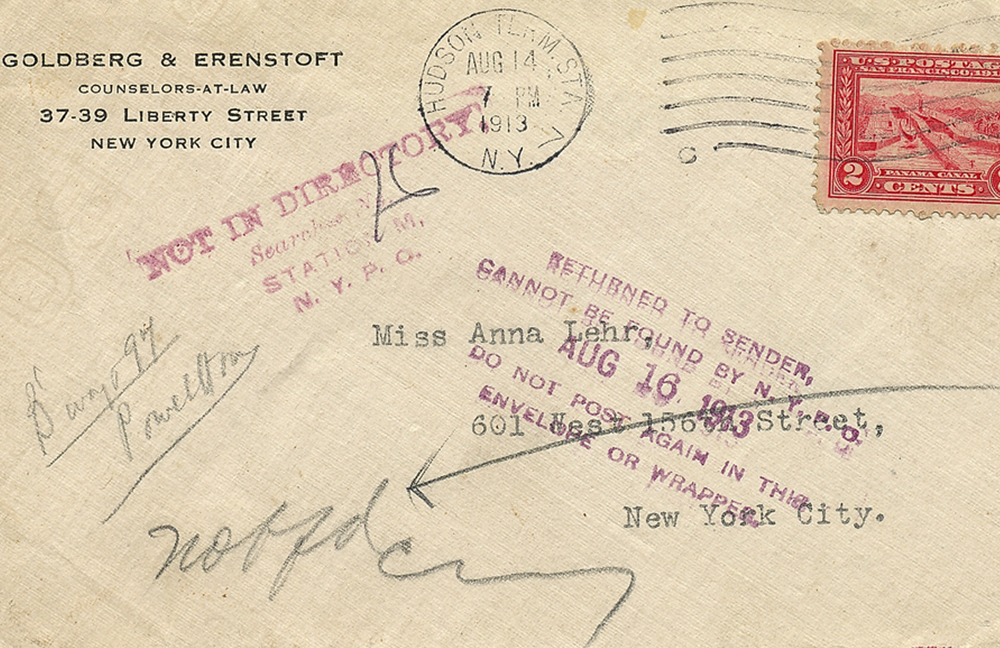 GOLDBERG & ERENSTOFT
COUNSELORS-AT-LAW
37-39 LIBERTY STREET
NEW YORK CITY
HUDSON TERM. STA.
AUG 14
7 PM
1913
N.Y.
U.S. POSTAGE
SAN FRANCISCO
2
PANAMA CANAL
CENTS
NOT IN DIRECTORY
STATION M,
N. Y. P. O.
RETURNED TO SENDER,
CANNOT BE FOUND BY N. Y. P. O.
AUG 16 1913
DO NOT POST AGAIN IN THIS
ENVELOPE OR WRAPPER.
Miss Anna Lehr,
601 West 156th Street,
New York City.
B'way & 97
not fd